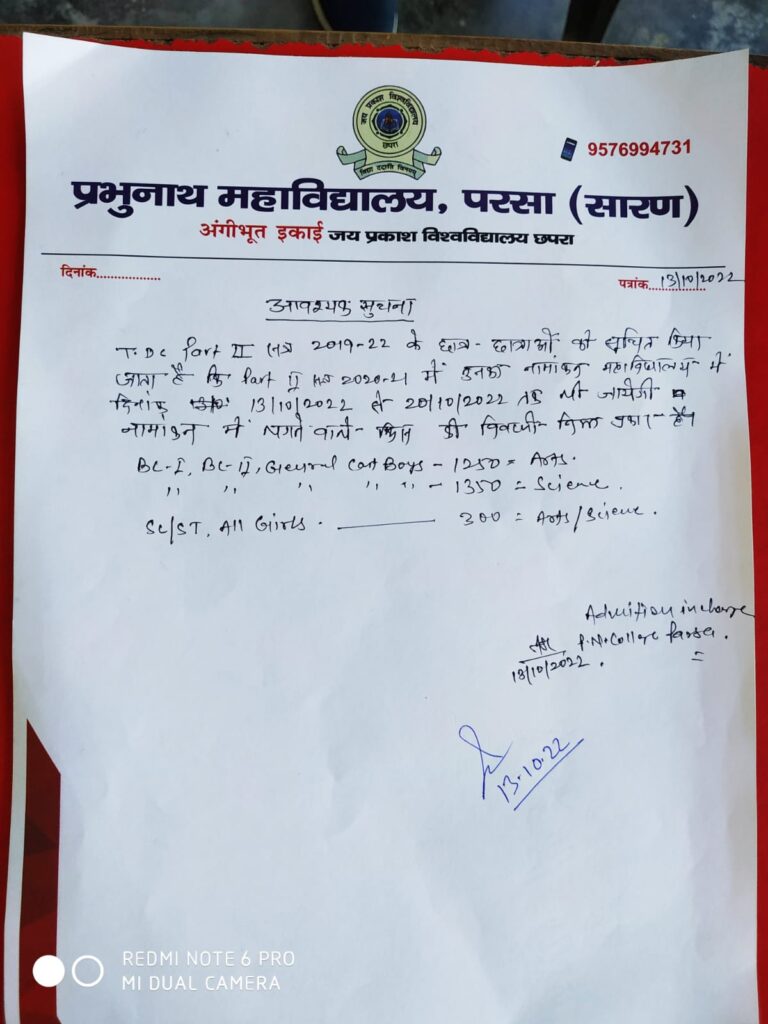 जय प्रकाश विश्वविद्यालय
छपरा
विद्या ददाति विनयम्
9576994731
प्रभुनाथ महाविद्यालय, परसा (सारण)
अंगीभूत इकाई जय प्रकाश विश्वविद्यालय छपरा
दिनांक.................. पत्रांक.................. 13/10/2022
आवश्यक सुचना
T.DC Part II सत्र 2019-22 के छात्र-छात्राओं को सूचित किया
जाता है कि Part II सत्र 2020-21 में उनका नामांकन महाविद्यालय में
दिनांक 13/10/2022 से 20/10/2022 तक ली जायेगी
नामांकन में लगने वाले की विवरणी निम्न प्रकार है।
BC-I, BC-II, General Cast Boys - 1250 = Arts.
" " " " " - 1350 = Science.
SC/ST, All Girls. ——— 300 = Arts/Science.
Admition incharge
P.N. College Parsa.
13/10/2022.
13.10.22
REDMI NOTE 6 PRO
MI DUAL CAMERA